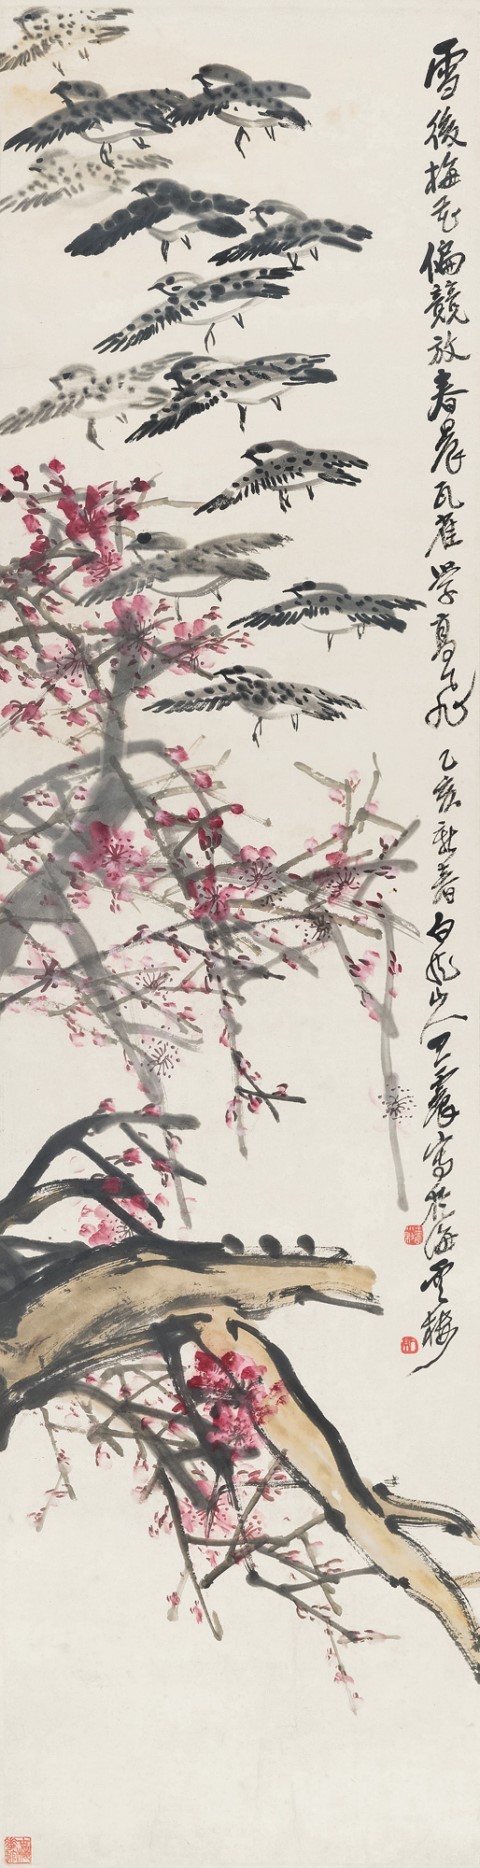 雪後梅花偏競放春晨瓦雀学高飛乙亥新春白龍山人王震寫於海雲樓